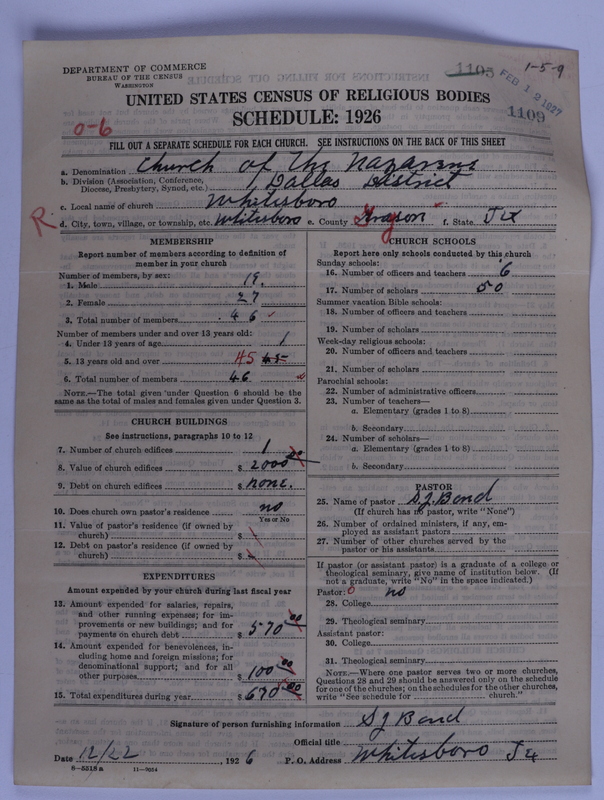 DEPARTMENT OF COMMERCE
BUREAU OF THE CENSUS
WASHINGTON
1105
FEB 12 1927
1-5-9
1109
UNITED STATES CENSUS OF RELIGIOUS BODIES
SCHEDULE: 1926
0-6
FILL OUT A SEPARATE SCHEDULE FOR EACH CHURCH. SEE INSTRUCTIONS ON THE BACK OF THIS SHEET
a. Denomination Church of The Nazarene
b. Division (Association, Conference, Diocese, Presbytery, Synod, etc.) Dallas District
c. Local name of church Whitesboro
R.
d. City, town, village, or township, etc. Whitesboro e. County Grayson f. State Tex
MEMBERSHIP
Report number of members according to definition of member in your church
Number of members, by sex:
1. Male 19.
2. Female 27
3. Total number of members 46
Number of members under and over 13 years old:
4. Under 13 years of age 1
5. 13 years old and over 45 45
6. Total number of members 46
NOTE.—The total given under Question 6 should be the same as the total of males and females given under Question 3.
CHURCH BUILDINGS
See instructions, paragraphs 10 to 12
7. Number of church edifices 1
8. Value of church edifices $ 2000 00
9. Debt on church edifices $ none.
10. Does church own pastor's residence no
Yes or No
11. Value of pastor's residence (if owned by church) $
12. Debt on pastor's residence (if owned by church) $
EXPENDITURES
Amount expended by your church during last fiscal year
13. Amount expended for salaries, repairs, and other running expenses; for improvements or new buildings; and for payments on church debt $ 570 00
14. Amount expended for benevolences, including home and foreign missions; for denominational support; and for all other purposes $ 100 00
15. Total expenditures during year $ 670 00
CHURCH SCHOOLS
Report here only schools conducted by this church
Sunday schools:
16. Number of officers and teachers 6
17. Number of scholars 50
Summer vacation Bible schools:
18. Number of officers and teachers
19. Number of scholars
Week-day religious schools:
20. Number of officers and teachers
21. Number of scholars
Parochial schools:
22. Number of administrative officers
23. Number of teachers—
a. Elementary (grades 1 to 8)
b. Secondary
24. Number of scholars—
a. Elementary (grades 1 to 8)
b. Secondary
PASTOR
25. Name of pastor S.J. Bond
(If church has no pastor, write "None")
26. Number of ordained ministers, if any, employed as assistant pastors
27. Number of other churches served by the pastor or his assistants
If pastor (or assistant pastor) is a graduate of a college or theological seminary, give name of institution below. (If not a graduate, write "No" in the space indicated.)
Pastor: 0 no
28. College
29. Theological seminary
Assistant pastor:
30. College
31. Theological seminary
NOTE.—Where one pastor serves two or more churches, Questions 28 and 29 should be answered only on the schedule for one of the churches; on the schedules for the other churches, write "See schedule for church."
Signature of person furnishing information S J Bond
Official title
Date 12/22, 1926 P. O. Address Whitesboro Tex
8-5518a 11-9054